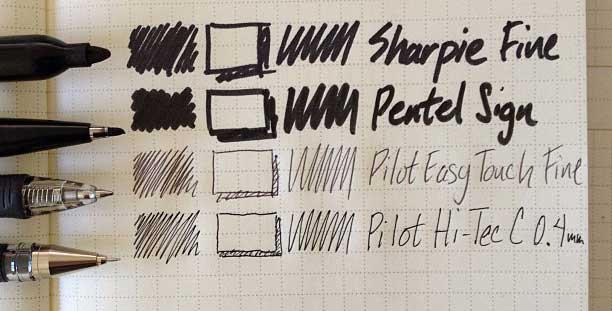 Sharpie Fine
Pentel Sign
Pilot EasyTouch Fine
Pilot Hi-Tec C 0.4mm